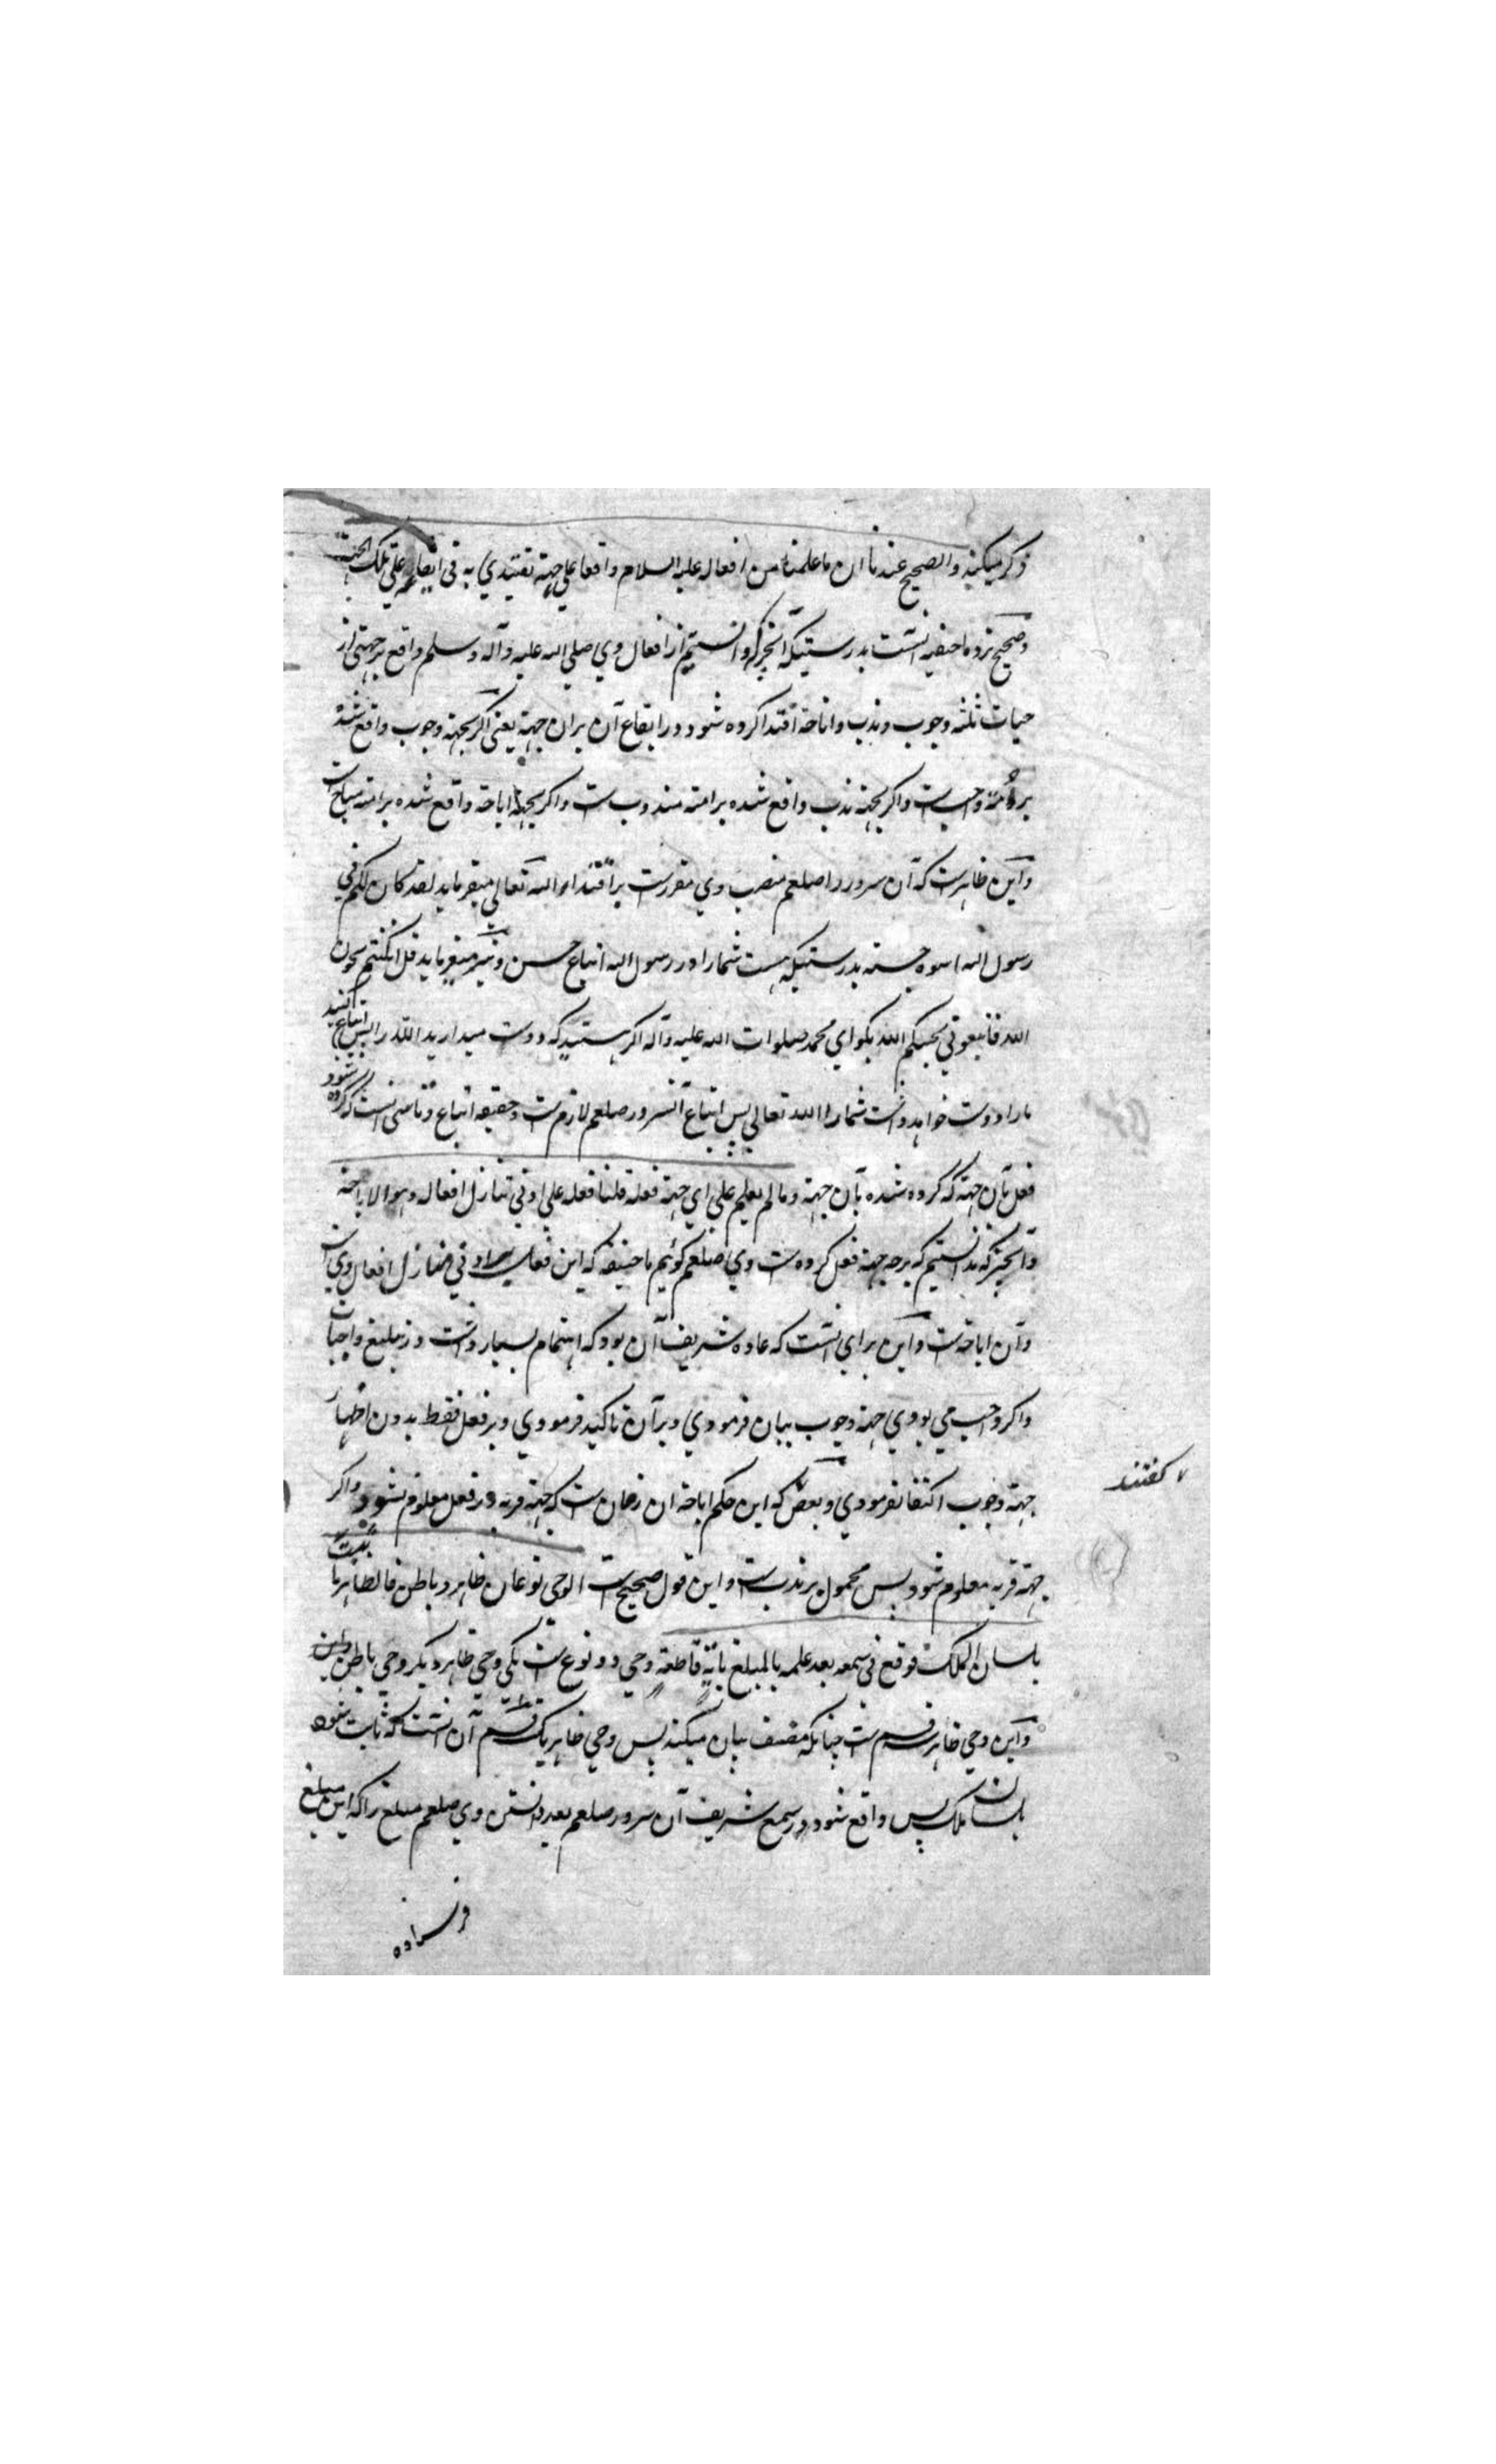 ذکر میکند والصحیح عندنا ان ما علمنا من افعاله علیه السلام واقعا علی جهة نقتدی به فی ایقاعه علی تلک الجهة
وصحیح نزد ما حنفیه آنست بدرستیکه آنچیزکه دانستیم از افعال وی صلی الله علیه وآله وسلم واقع بر جهتی از
جهات ثلثه وجوب وندب واباحة اقتدا کرده شود در ایقاع آن بران جهة یعنی اگر بجهة وجوب واقع شده
بر امة واجبست واگر بجهة ندب واقع شده بر امته مندوبست واگر بجهة اباحة واقع شده بر امته مباحست
واین ظاهرست که آن سرور را صلعم منصب وی مقررست بر اقتدا والله تعالی میفرماید لقد کان لکم فی
رسول الله اسوه حسنه بدرستیکه هست شمارا در رسول الله اتباع حسن ونیز میفرماید قل ان کنتم تحبون
الله فاتبعونی یحببکم الله بگو ای محمد صلوات الله علیه وآله اگر هستید که دوست میدارید الله را پس اتباع کنید
مارا دوست خواهد داشت شمارا الله تعالی پس اتباع آنسرور صلعم لازمست وحقیقه اتباع وتاسی آنست که کرده شود
فعل بآن جهة که کرده شده بآن جهة وما لم یعلم علی ای جهة فعله قلنا فعله علی ادنی منازل افعاله وهو الاباحة
وآنچیزکه ندانستیم که بر چه جهة فعل کرده است وی صلعم گوئیم ما حنیفه که این فعل بر ادنی منازل افعال ویست
وآن اباحتست واین برای آنست که عاده شریف آن بود که اهتمام بسیار داشت در تبلیغ واجبات
واگر واجب می بودی جهة وجوب بیان فرمودی وبرآن تاکید فرمودی وبر فعل فقط بدون اظهار
جهة وجوب اکتفا نفرمودی وبعض که این حکم اباحة ان زمان ست که جهة قربه در فعل معلوم نشود واگر
گفتند
جهة قربه معلوم شود پس محمول بر ندبست واین قول صحیح ست الوحی نوعان ظاهر وباطن فالظاهر ما ثبت
بلسان الملک فوقع فی سمعه بعد علمه بالمبلغ بایة قاطعة وحی دو نوع ست یکی وحی ظاهر دیگر وحی باطن
واین وحی ظاهر سه قسم ست چنانکه مصنف بیان میکند پس وحی ظاهر یک قسم آن آنست که ثابت شود
بلسان ملک پس واقع شود در سمع شریف آن سرور صلعم بعد دانستن وی صلعم مبلغ را که این مبلغ
فرستاده